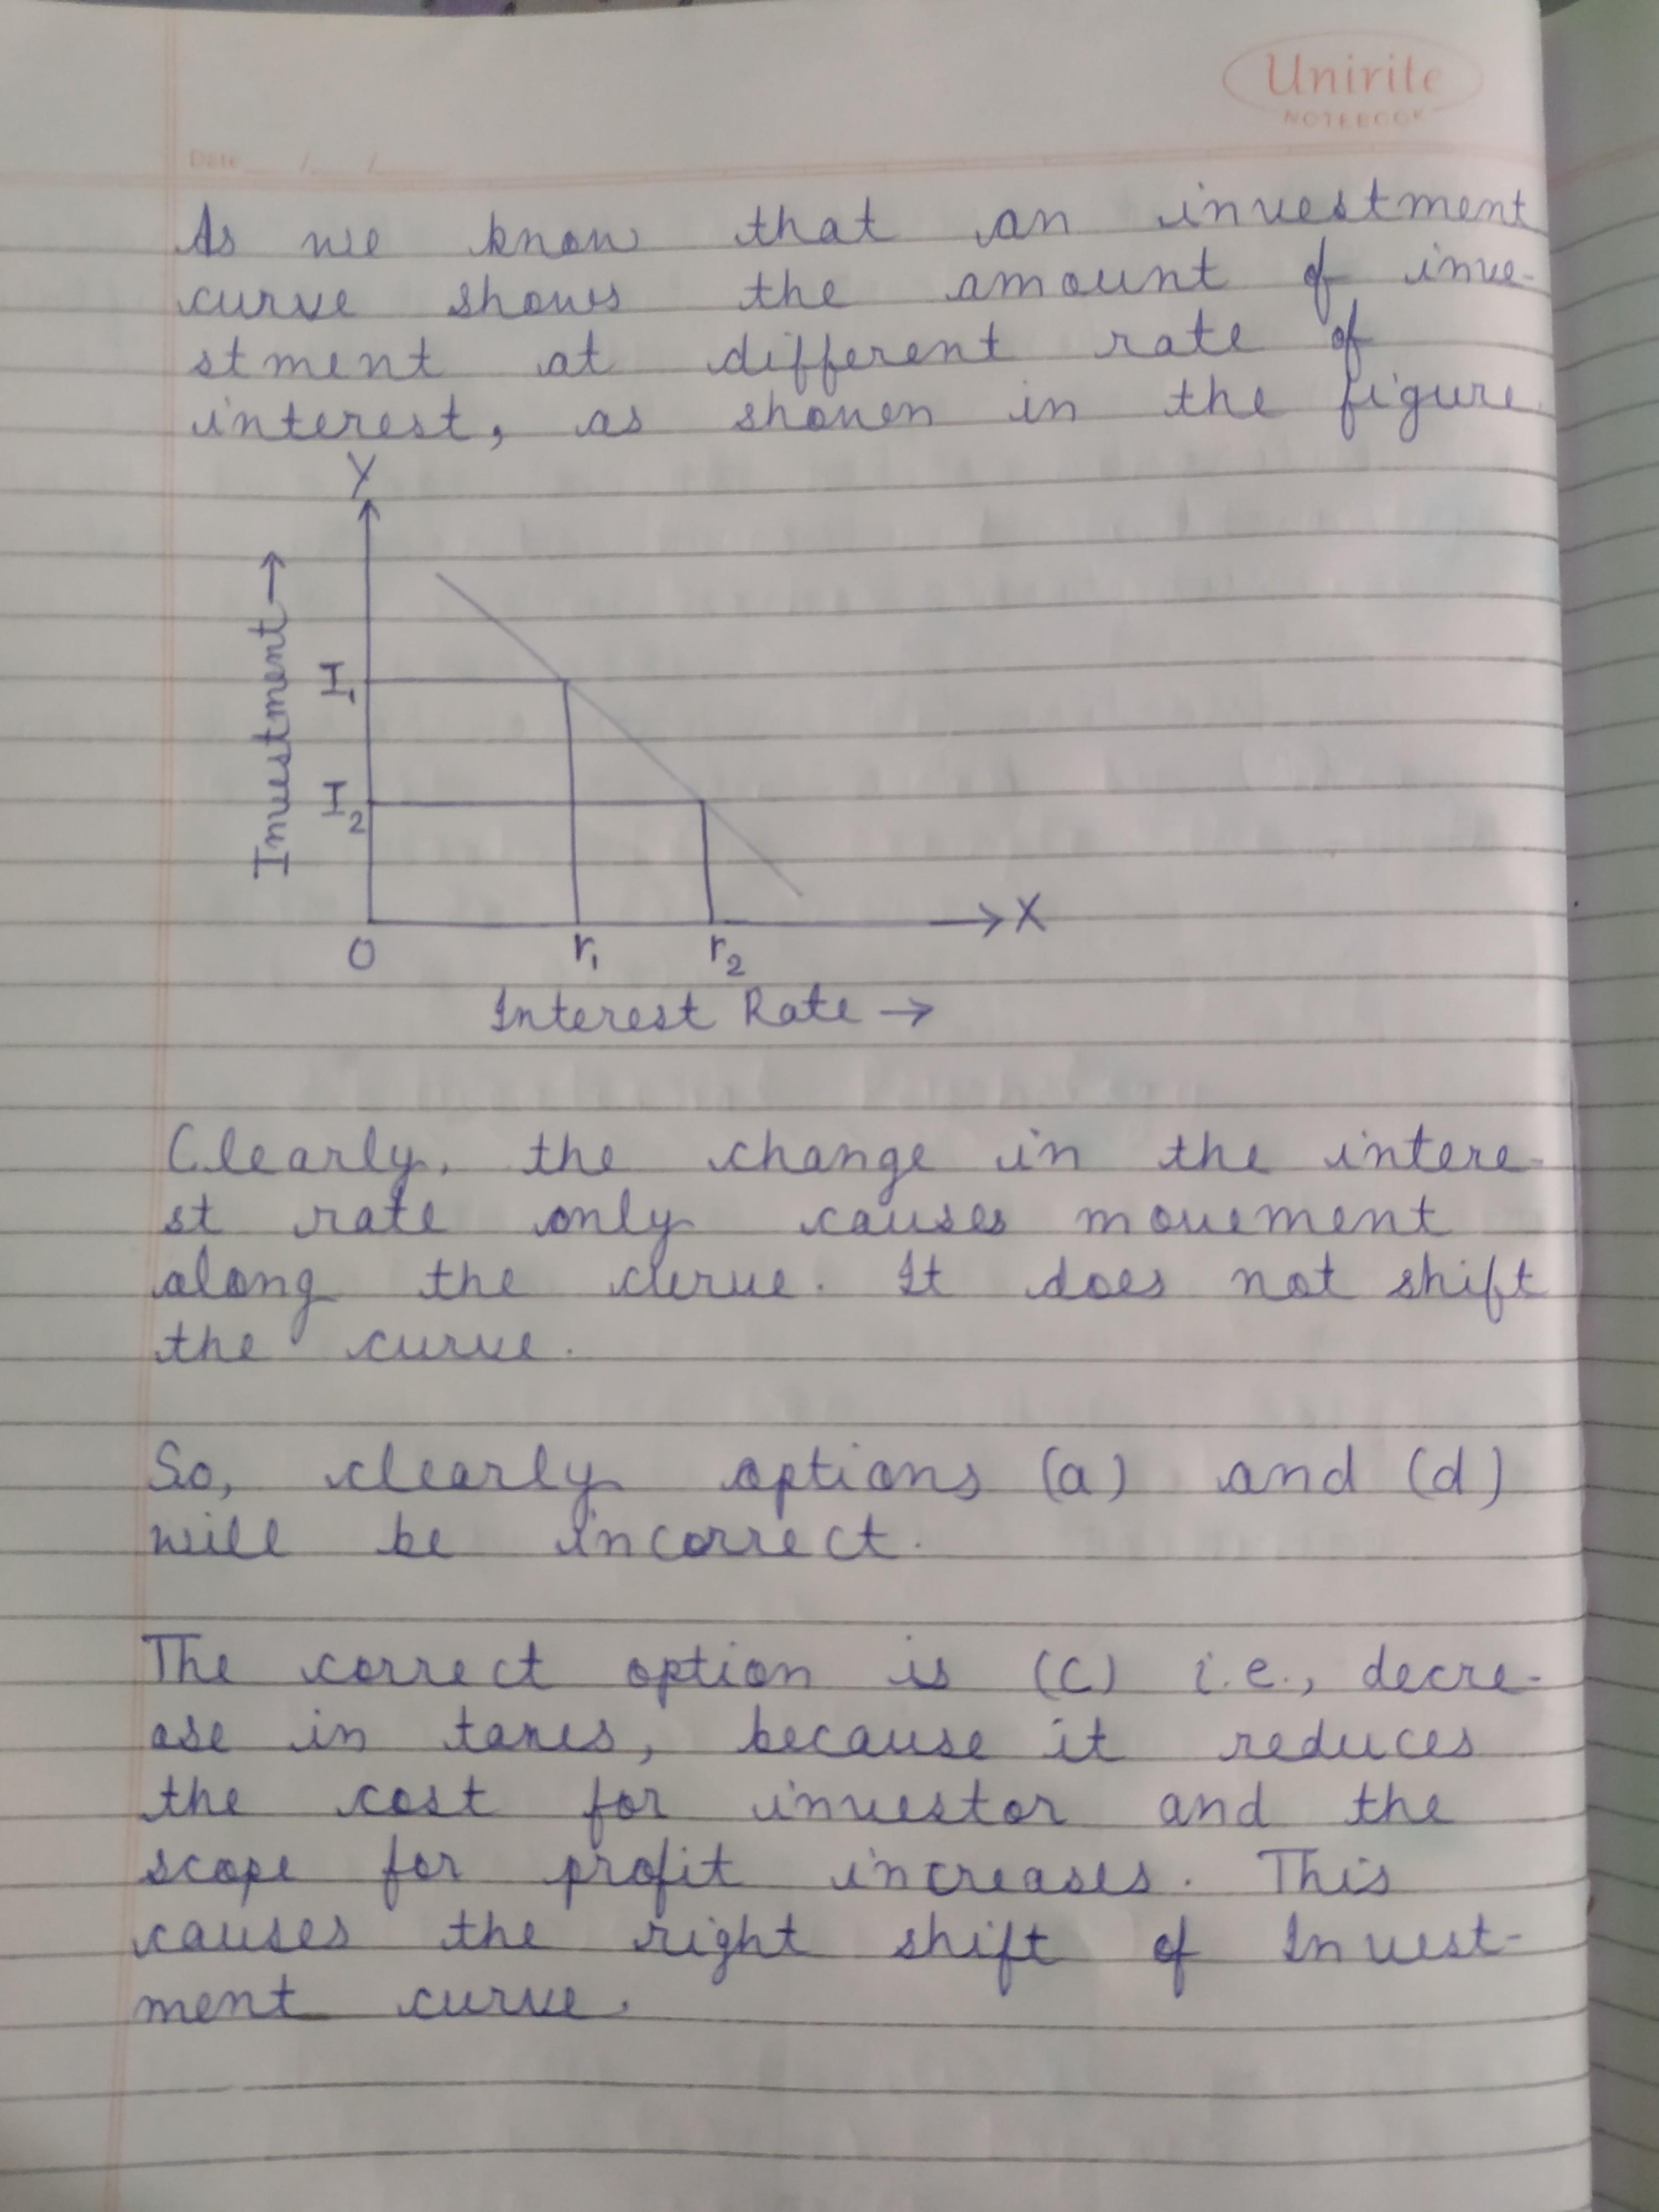 Unirite
NOTEBOOK
Date __/__/__
As we know that an investment
curve shows the amount of inve-
stment at different rate of
interest, as shown in the figure.
Y
Investment →
I₁
I₂
X
O
r₁
r₂
Interest Rate →
Clearly, the change in the intere-
st rate only causes movement
along the curve. It does not shift
the curve.
So, clearly options (a) and (d)
will be incorrect.
The correct option is (c) i.e., decre-
ase in taxes, because it reduces
the cost for investor and the
scope for profit increases. This
causes the right shift of Invest-
ment curve.